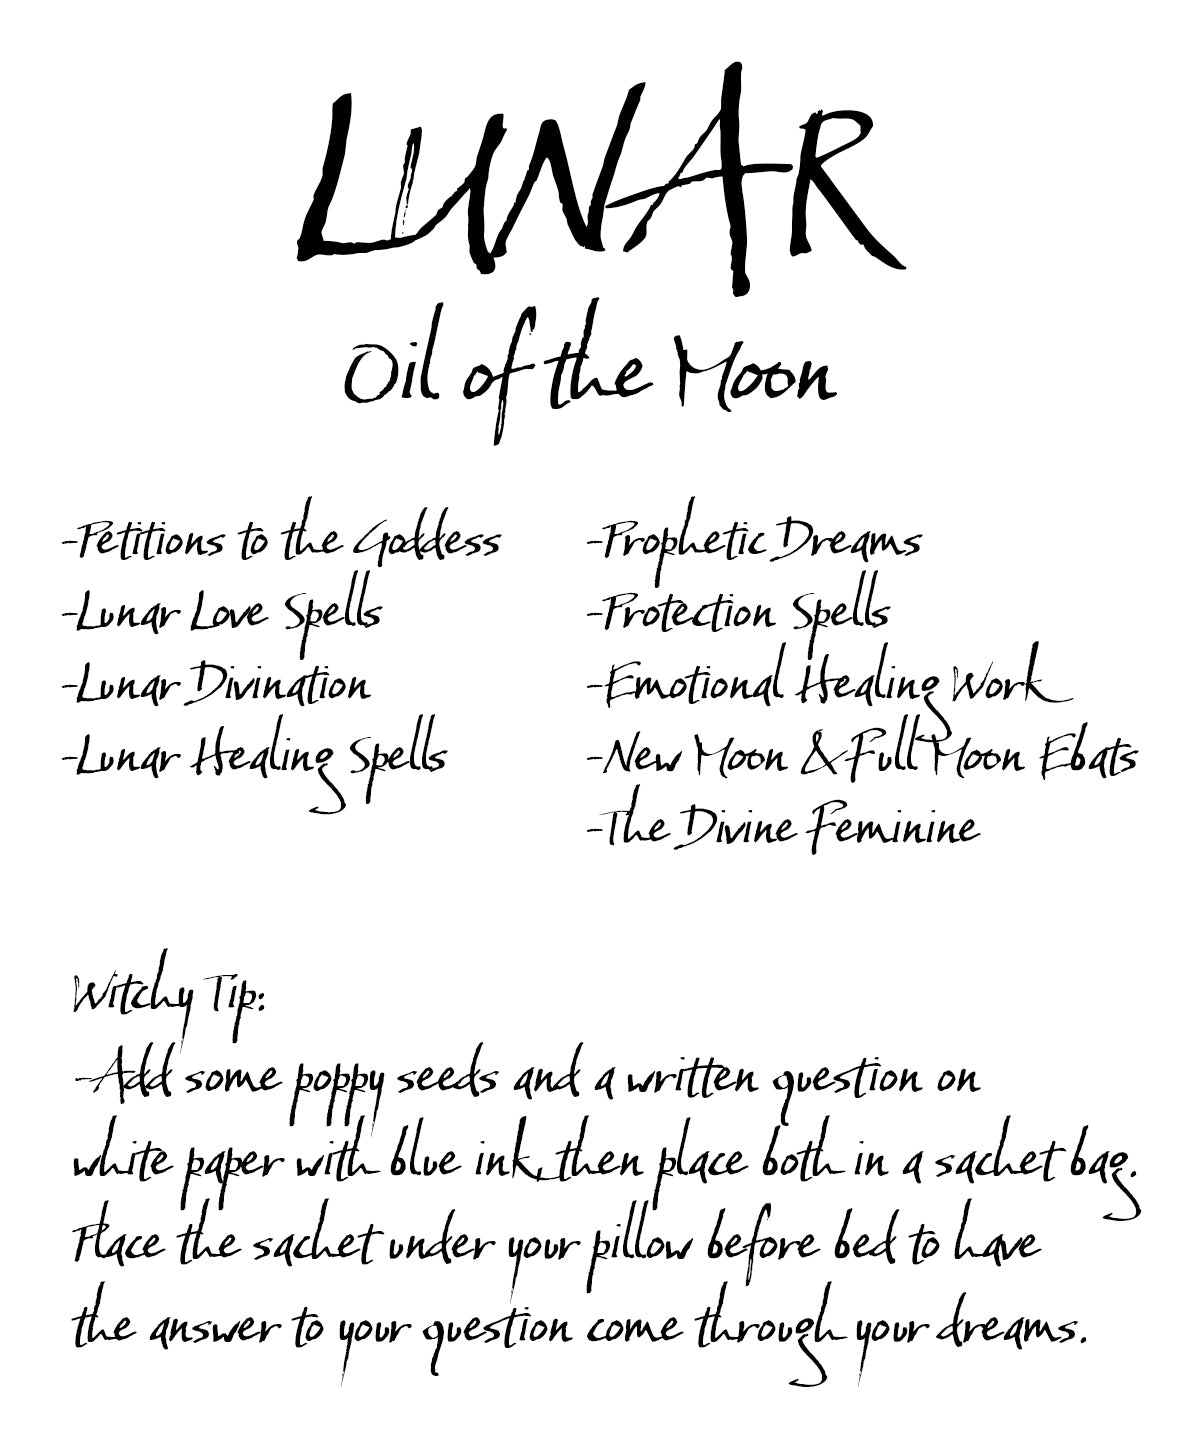 LUNAR
Oil of the Moon
-Petitions to the Goddess
-Lunar Love Spells
-Lunar Divination
-Lunar Healing Spells
-Prophetic Dreams
-Protection Spells
-Emotional Healing Work
-New Moon & Full Moon Ebats
-The Divine Feminine
Witchy Tip:
-Add some poppy seeds and a written question on
white paper with blue ink, then place both in a sachet bag.
Place the sachet under your pillow before bed to have
the answer to your question come through your dreams.